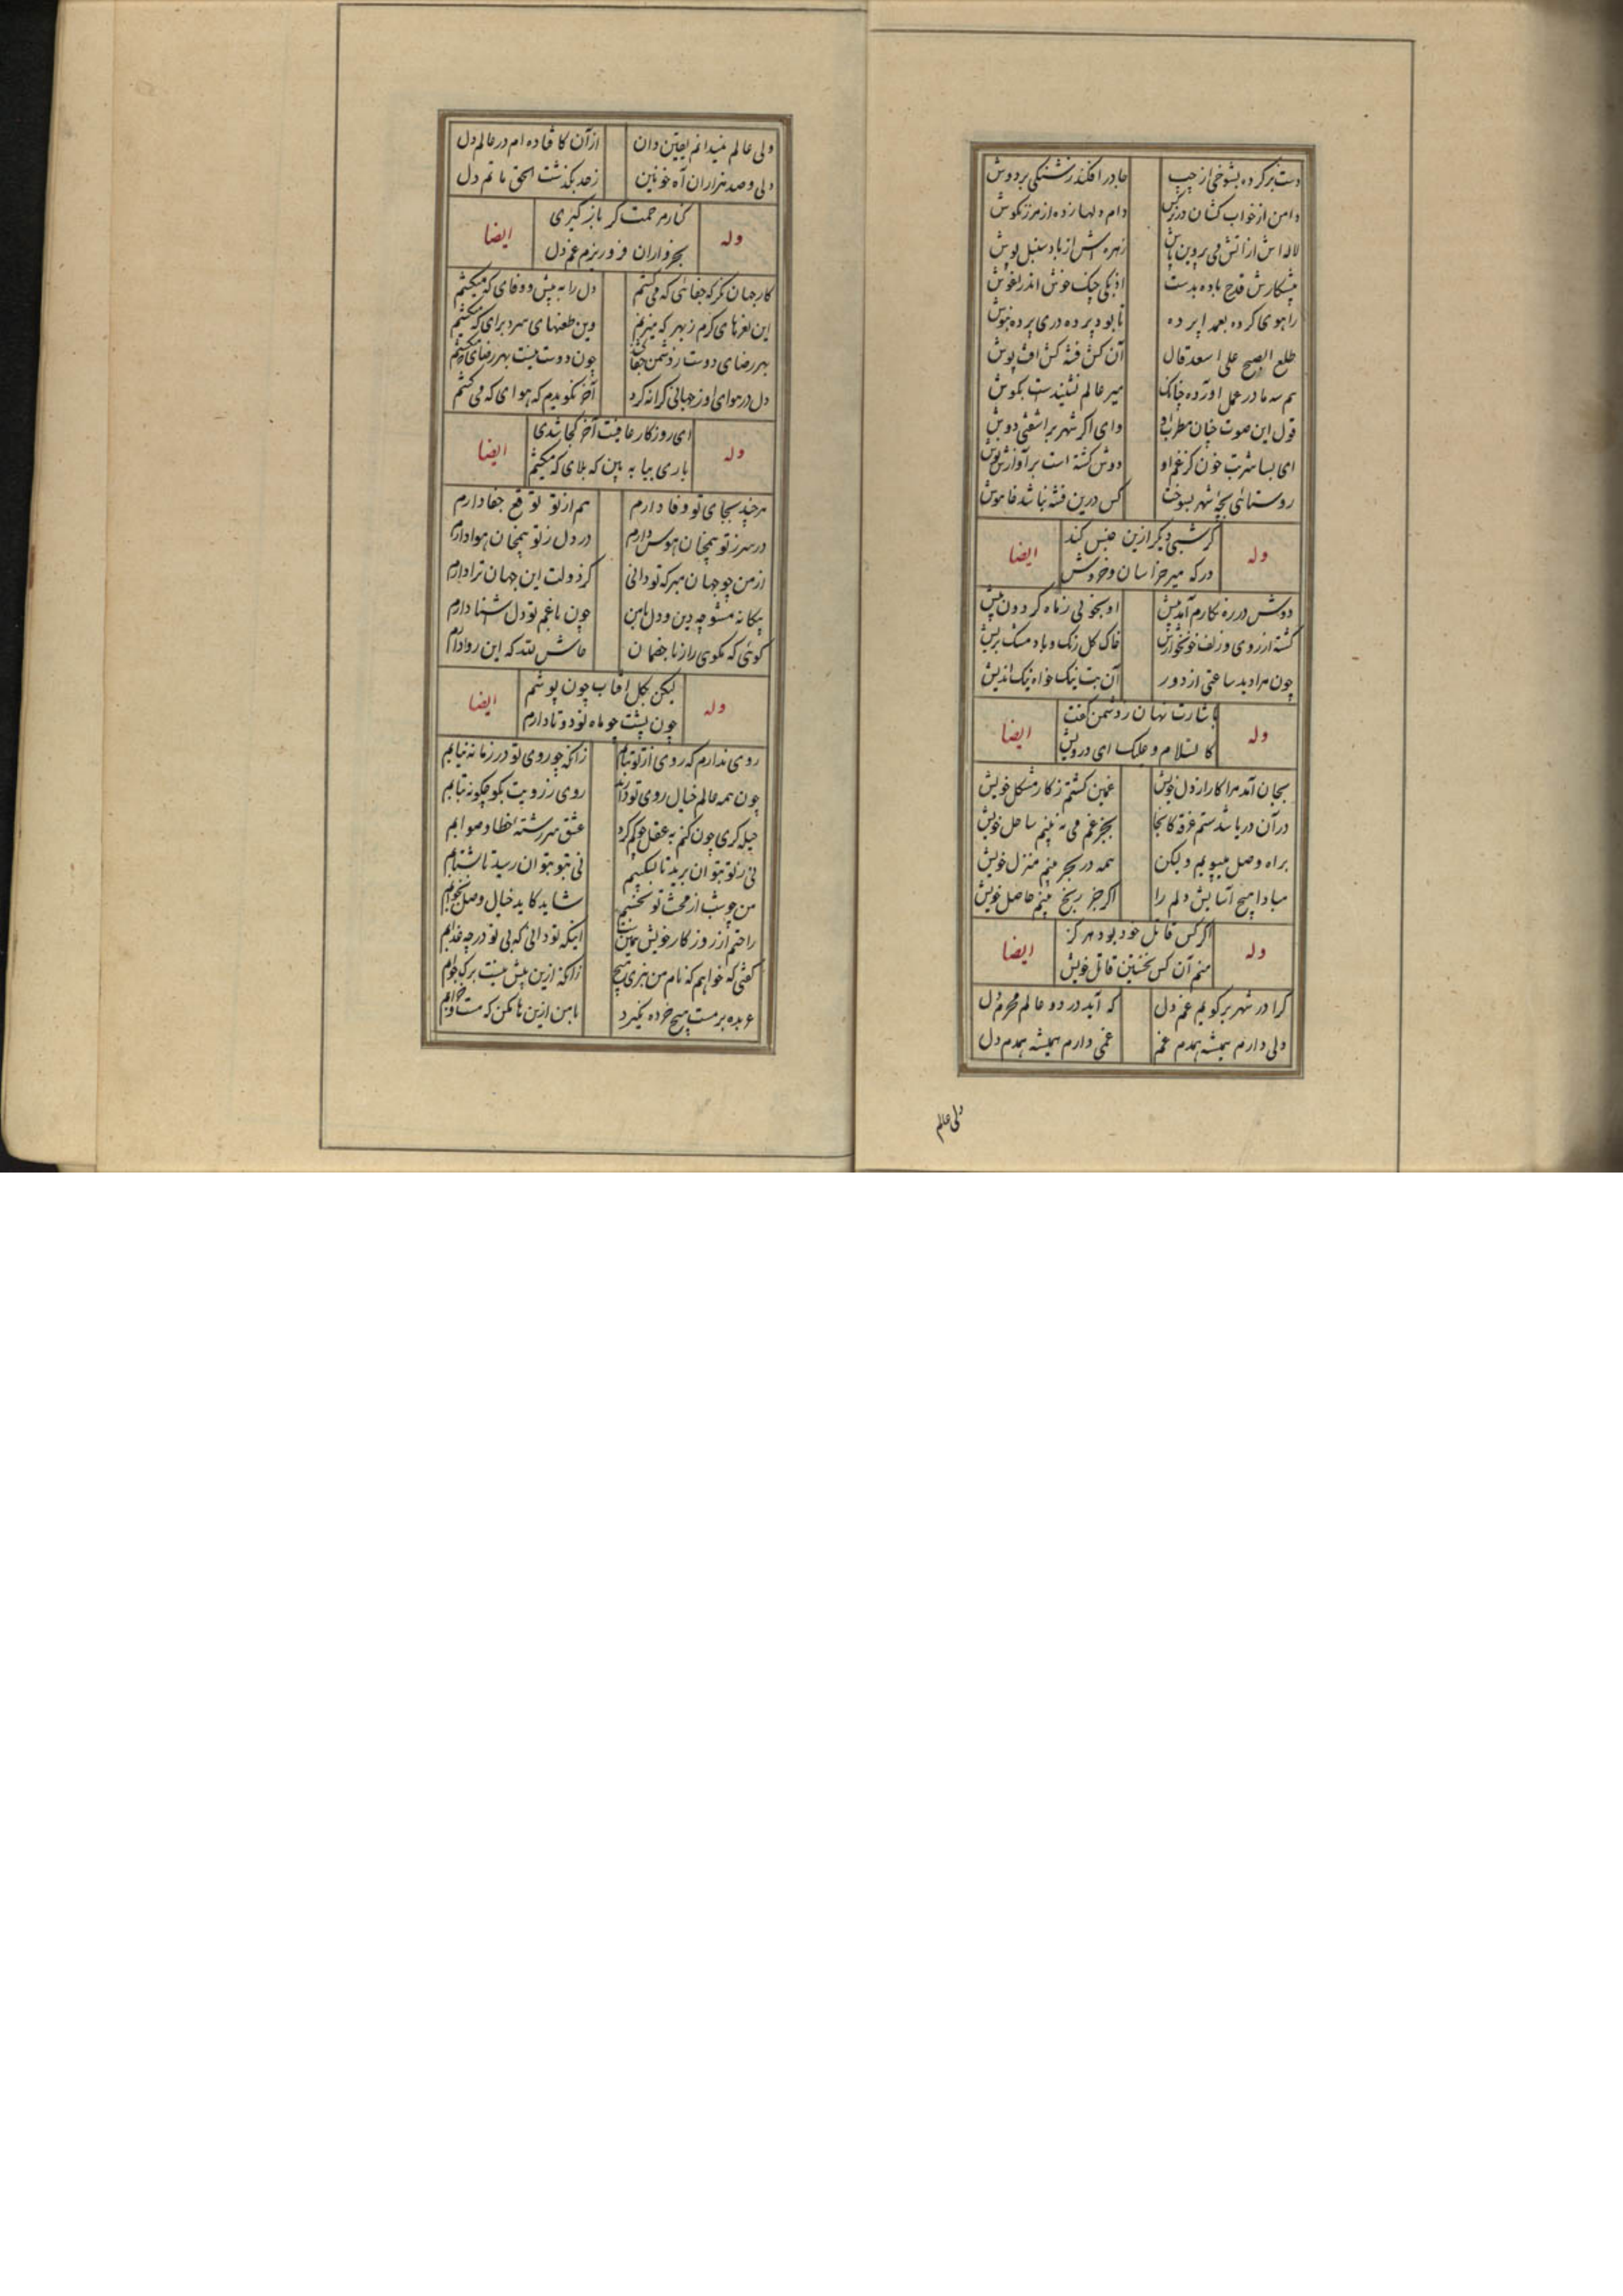 دست بر کرده بشوخی از جیب چادر افکنده ز شنگی بر دوش
دامن از خواب کشان در نرکس دام دلها زده از مرزنکوش
لاله اش از آتش می پروین پاش زهره اش از باد سنبل پوش
پیشکارش قدح باده بدست از یکی چنک خوش اندر آغوش
راهوی کرده بعمدا پرده تا بود پرده دری پرده نیوش
طلع الصبح علی اسعد فال آن کش فتنه کش آفت پوش
بم سه تا در عمل آورده چنانک میر عالم نشنیدست بکوش
قول این صوت چنان مطرب وای اکر شهر بر آشفتی دوش
ای بسا شربت خون کز غم او دوش کشته است بر آوازش نوش
روستائی بچه شهر بسوخت کس درین فتنه نباشد خاموش
وله کر شبی دیکر ازین جنس کند ایضا
در که میر خراسان وخروش
دوش در ره نکارم آمد پیش او بخوبی ز ماه کردون پیش
کشته از روی و زلف خونخوارش خاک کل رنک و باد مشک پریش
چون مرا دید ساعتی از دور آن بت نیک خواه نیک اندیش
وله باشارت نهان ز دشمن کفت ایضا
کالسلام و علیک ای درویش
بجان آمد مرا کار از دل خویش غمین کشتم ز کار مشکل خویش
در آن دریا شدستم غرقه کانجا بجز غم می نه بینم ساحل خویش
براه وصل میپویم ولیکن همه در هجر بینم منزل خویش
مبادا هیچ آسایش دلم را اکر جز رنج بینم حاصل خویش
وله اکر کس قاتل خود بود هرکز ایضا
منم آن کس نخستین قاتل خویش
کرا در شهر برکویم غم دل که آید در دو عالم محرم دل
دلی دارم همیشه همدم غم غمی دارم همیشه همدم دل
دلی عالم
ولی عالم نمیدانم یقین دان از آن کافتاده ام در عالم دل
دلی وصد هزاران آه خونین زحد بکذشت الحق ماتم دل
وله کنارم حمت کر باز کیری ایضا
بخرواران فرو ریزم غم دل
کار جهان نکر که جفای که می کشم دل را به پیش و وفای که میکشم
این نعرهای کرم ز بهر که میزنم وین طعنهای سرد برای که میکشم
بهر رضای دوست ز دشمن جفا کشند چون دوست نیست بهر رضای که میکشم
دل در هوای او ز جهانی کرانه کرد آخر نکویدم که هوای که می کشم
وله ای روزکار عافیت آخر کجا شدی ایضا
باری بیا به بین که بلای که میکشم
هرچند بجای تو وفا دارم هم از تو توقع جفا دارم
در سر ز تو همچنان هوس دارم در دل ز تو همچنان هوا دارم
از من چو جهان مبر که تو دانی کز دولت این جهان ترا دارم
بیکانه مشو چه دین و دل با من چون با غم تو دل آشنا دارم
کوئی که مکوی راز با خصمان حاش لله که این روا دارم
وله لیکن بکل آفتاب چون پوشم ایضا
چون پشت چو ماه نو دو تا دارم
روی ندارم که روی از تو بتابم زانکه چو روی تو در زمانه نیابم
چون همه عالم خیال روی تو دارد روی ز رویت بکو چکونه بتابم
حیله کری چون کنم به عقل چو کم کرد عشق سر رشته خطا و صوابم
نی ز تو بتوان برید تا بشکیبم نی بتو بتوان رسید تا بشتابم
من چو شب از محنت تو نخسبم شاید کاید خیال وصل بخوابم
راحتم از روزکار خویش همین است اینکه تو دانی که بی تو در چه عذابم
کفتی که خواهم که نام من نبری هیچ زانکه ازین پیش نیست برک جوابم
عربده بر مست هیچ خرده نکیرد با من ازین ها مکن که مست و خرابم